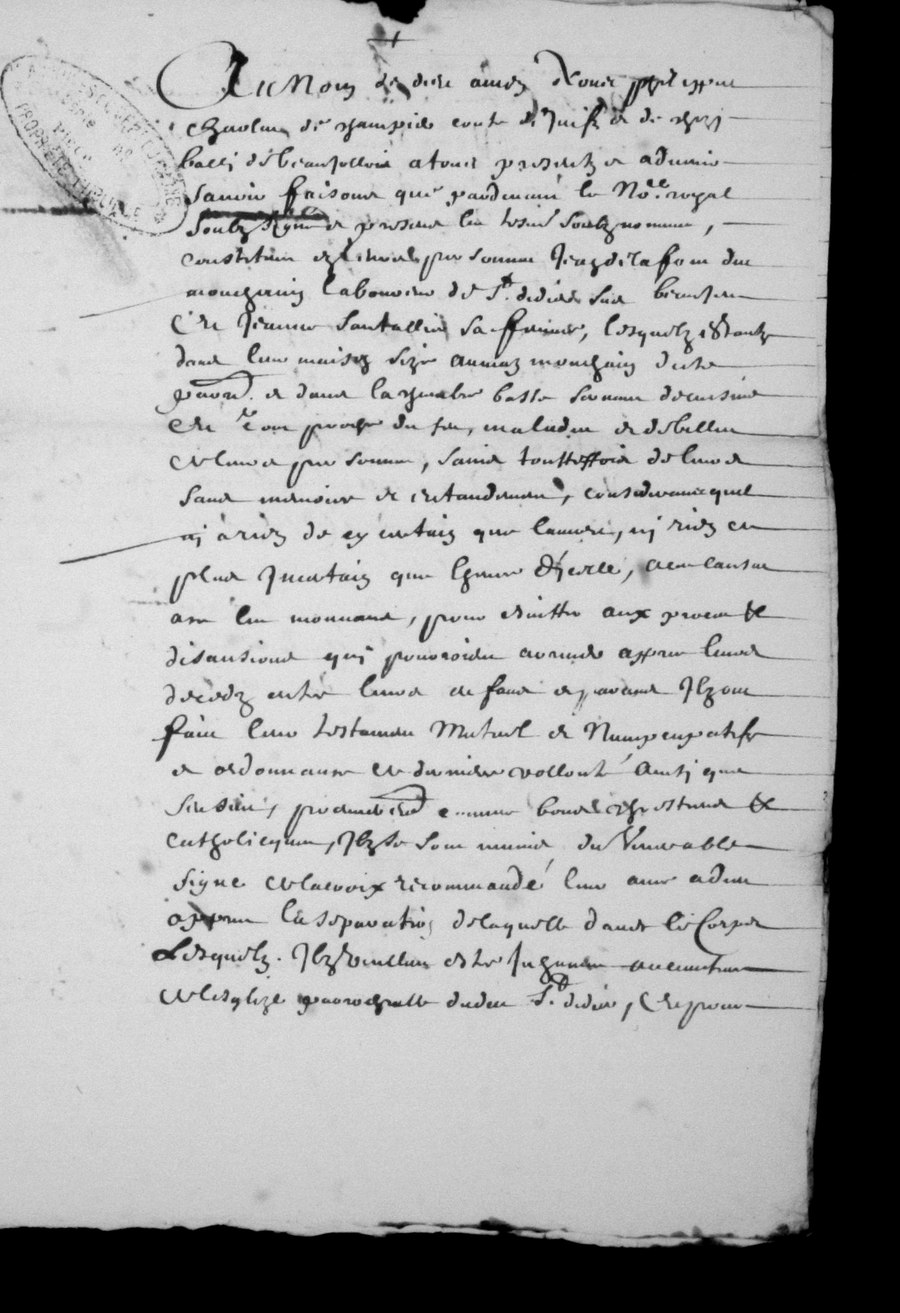 Au Nom de dieu amen Nous philippe
Charles de champier conte de Juif et de chizi
bally de beaujollois a tous presentz et advenir
scavoir faisons que pardevant le No.re royal
soubz signe et presens les tesm. soubz nommes,
constitues en leurs personnes Jean de la font dit
monchanin laboureur de S.t didier sur beaujeu
Et Jeanne Santallier sa femme, lesquelz estantz
dans leur maison size au maz monchanin dicte
parr. et dans la chambre basse servant de cuisine
proche du feu, malades et debilles
de leurs personnes, sains touttesfois de leurs
sans memoire et entandement, considerans quil
nj a rien de sy certain que la mort, nj rien de
plus Incertain que lheure dicelle, a ceste cause
ont les mourans, pour esvitter aux proces &
disantions quj pourroient arriver appres leurs
deceds entre leurs enfans et parans Ilz ont
fait leur testament Mutuel et Nuncupatif
et ordonnance de derniere vollonté Ainsj que
sensuit, premierement comme bons chrestiens &
Catholicques, Ilz se sont munis du Venerable
signe de la croix recommandé leur ame a dieu
appres la separation de laquelle dans le Corps
Lesquelz Ilz veullent estre Inhumes au cimetiere
de lesglize parrochialle dudit S.t didier, Et pour